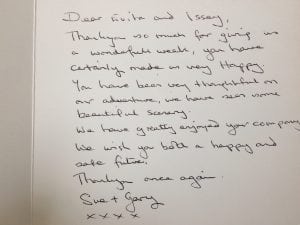 Dear Evita and Issey,
Thankyou so much for giving us
a wonderfull week, you have
certainly made us very Happy.
You have been very thoughtful on
our adventure, we have seen some
beautiful scenery.
We have greatly enjoyed your company
We wish you both a happy and
safe future.
Thankyou once again.
Sue + Gary
x x x x